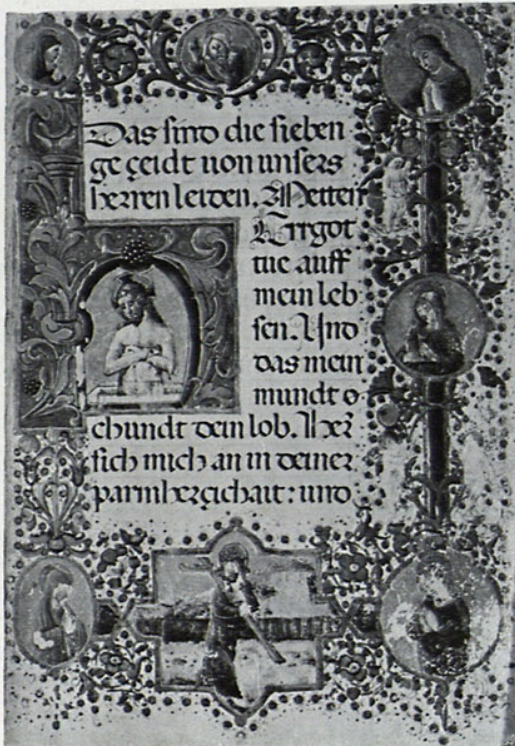 Das sind die sieben
ge çeidt uon unsers
herren leiden. Metten
Errgot
tue auff
mein leb
sen. Und
das mein
mundt o
chundt dein lob. Her
sich mich an in deiner
parmherçichait: und